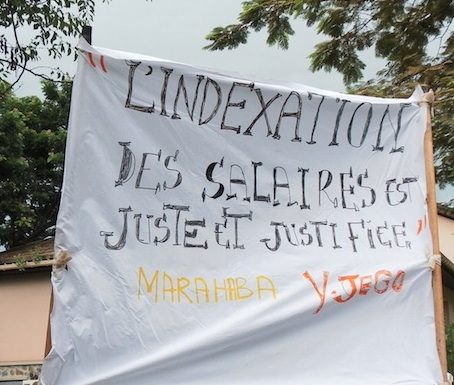 "L'INDEXATION
DES SALAIRES EST
JUSTE ET JUSTIFIÉE"
MARAHABA Y. JEGO